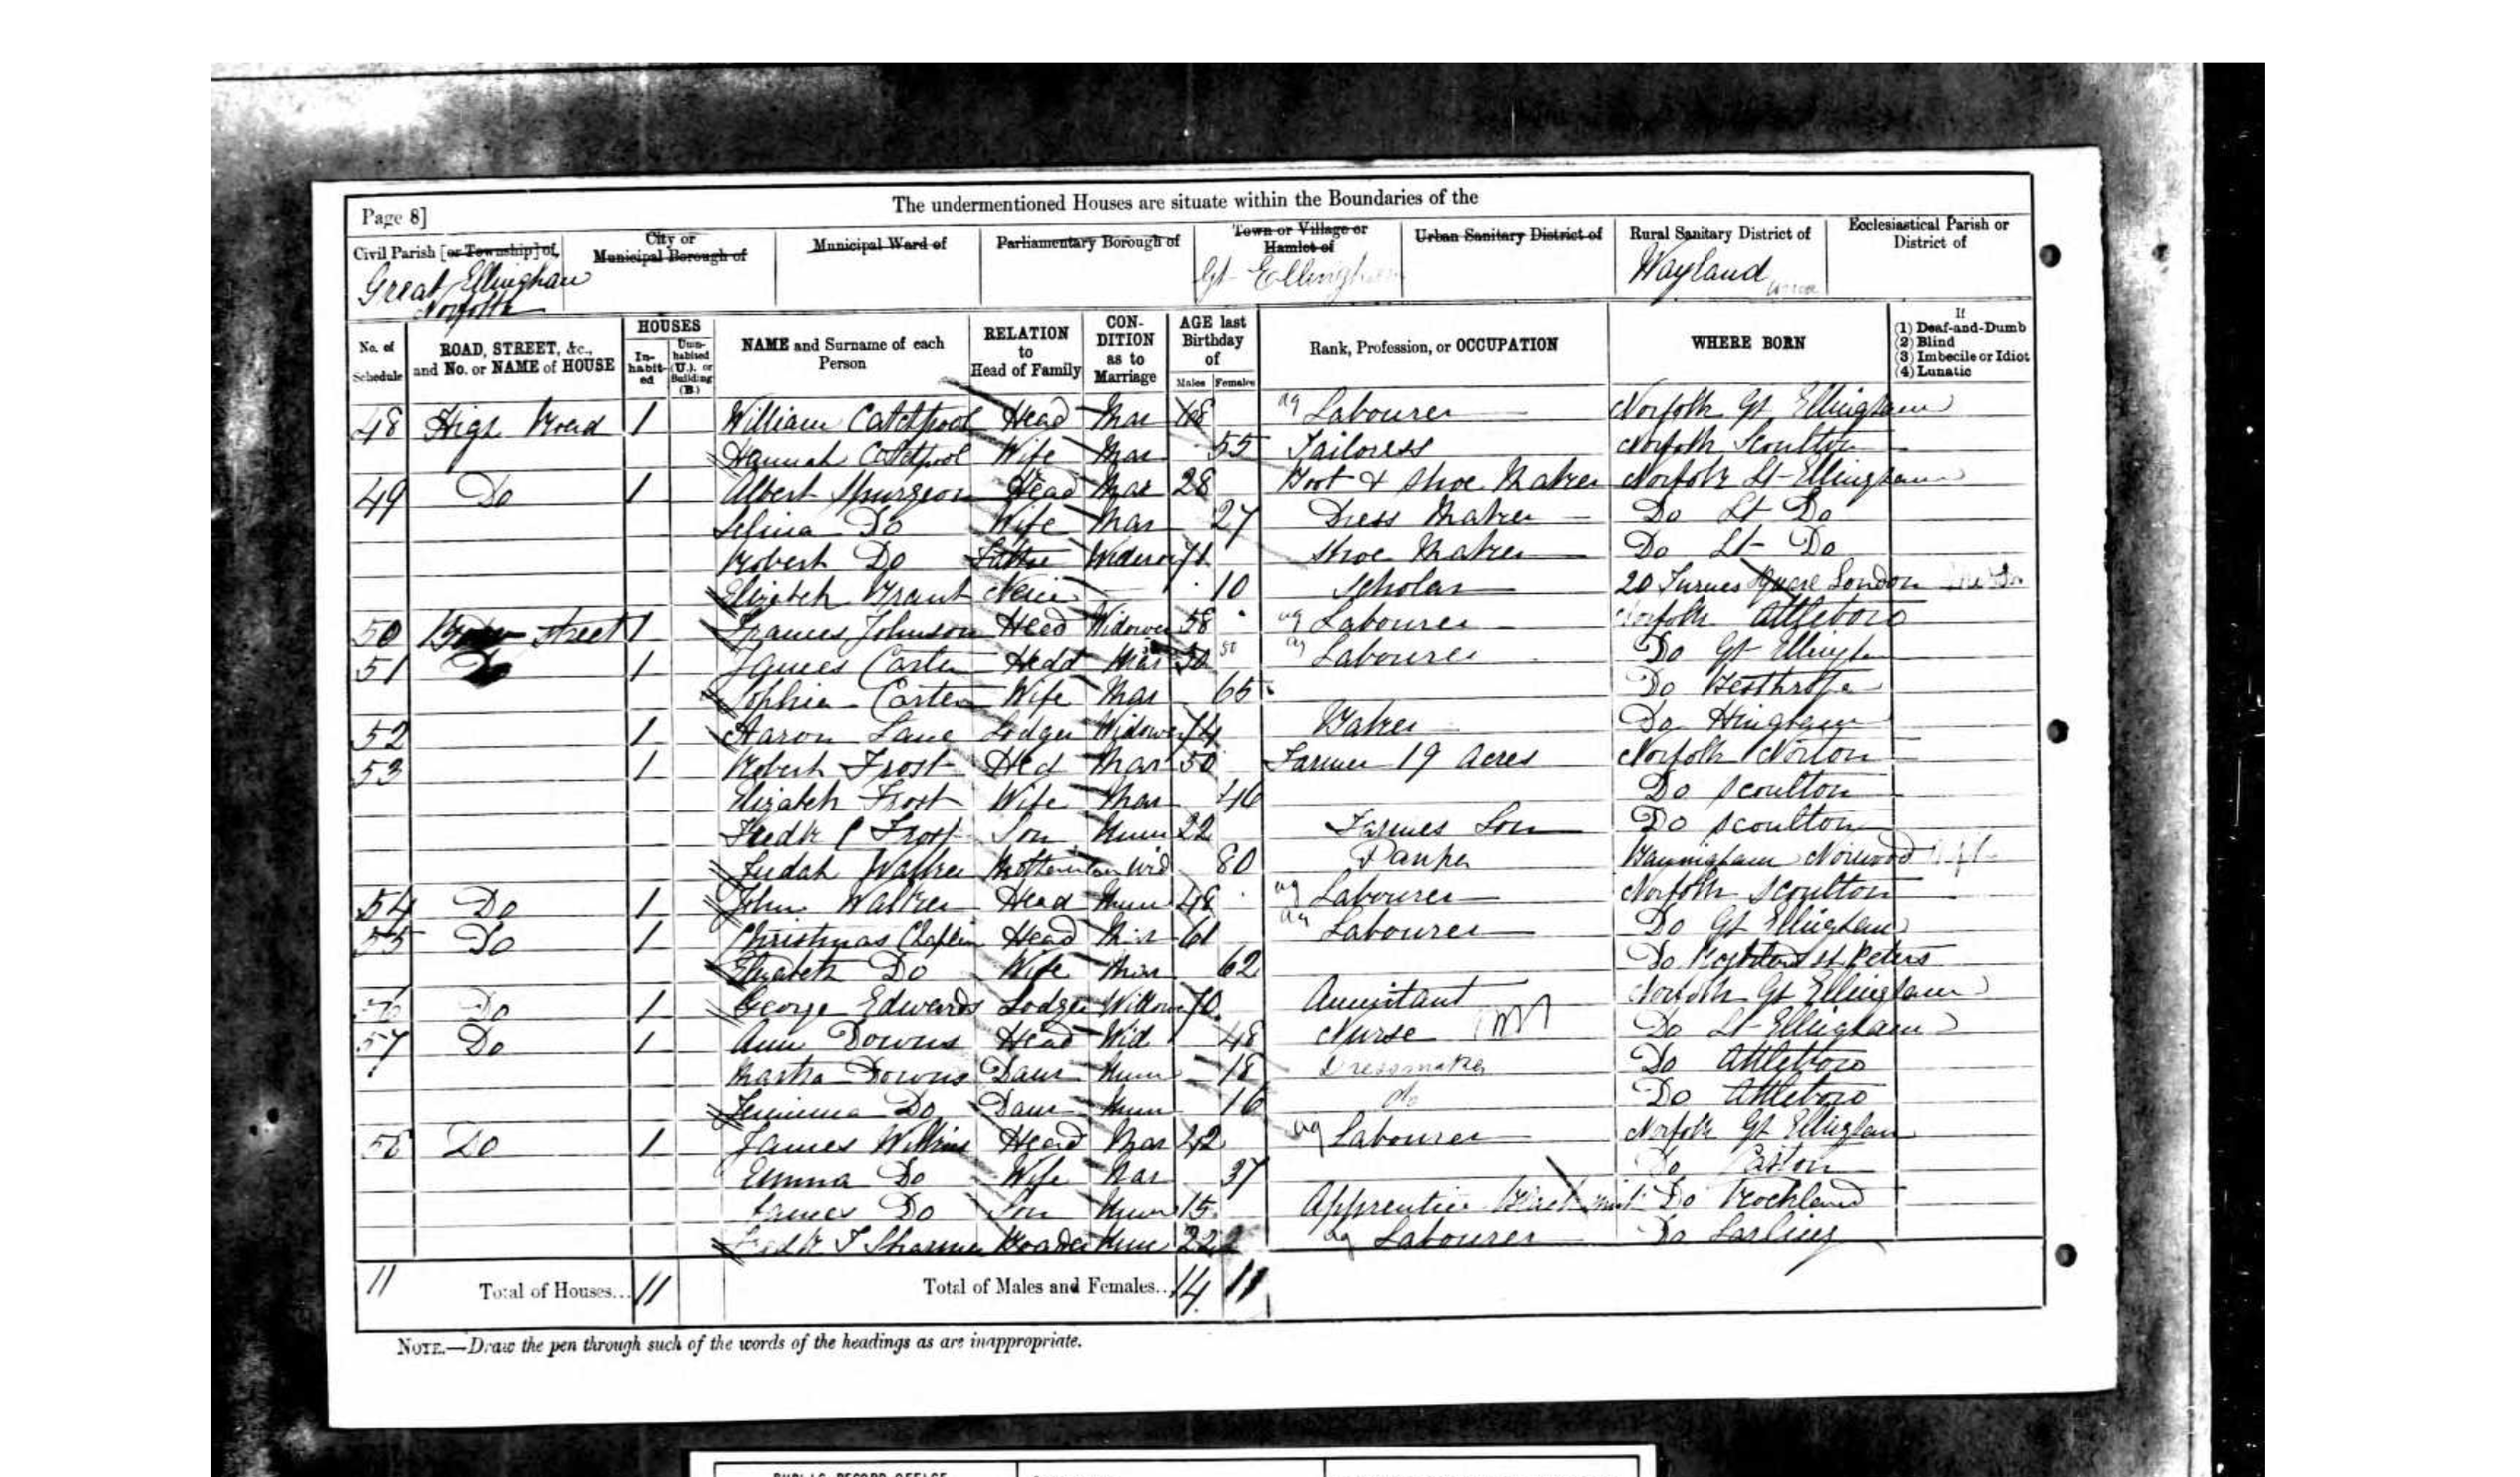 The undermentioned Houses are situate within the Boundaries of the
Page 8]
Civil Parish [or Township] of
Great Ellingham
Norfolk
City or
Municipal Borough of
Municipal Ward of
Parliamentary Borough of
Town or Village or
Hamlet of
Gt Ellingham
Urban Sanitary District of
Rural Sanitary District of
Wayland
Ecclesiastical Parish or
District of
No. of
Schedule
ROAD, STREET, &c.,
and No. or NAME of HOUSE
HOUSES
In-
habit-
ed
Unin-
habited
(U.), or
Building
(B.)
NAME and Surname of each
Person
RELATION
to
Head of Family
CON-
DITION
as to
Marriage
AGE last
Birthday
of
Males Females
Rank, Profession, or OCCUPATION
WHERE BORN
If
(1) Deaf-and-Dumb
(2) Blind
(3) Imbecile or Idiot
(4) Lunatic
48 High Road 1 William Catchpool Head Mar ag Labourer Norfolk Gt Ellingham
Hannah Catchpool Wife Mar 55 Tailoress Norfolk Scoulton
49 Do 1 Albert Spurgeon Head Mar 28 Boot & Shoe Maker Norfolk Lt Ellingham
Selina Do Wife Mar 27 Dress Maker Do Lt Do
Robert Do Widower 71 Shoe Maker Do Lt Do
Elizabeth Grant Neice 10 Scholar 20 Turner Square London
50 Street 1 Frances Johnson Head Widower 58 ag Labourer Norfolk Attleboro
51 Do 1 James Carter Hedd Mar 50 ag Labourer Do Gt Ellingham
Sophia Carter Wife Mar 65 Do Besthrope
52 1 Aaron Lane Lodger Widower 74 Baker Do Hingham
53 1 Robert Frost Hed Mar 50 Farmer 19 Acres Norfolk Norton
Elizabeth Frost Wife Mar 46 Do Scoulton
Fredk C Frost Son Unm 22 Farmers Son Do Scoulton
Judah Walker Motherinlaw Wid 80 Pauper Norwood
54 Do 1 John Walker Head Unm 48 ag Labourer Norfolk Scoulton
55 Do 1 Christmas Chaplin Head Mar 61 ag Labourer Do Gt Ellingham
Elizabeth Do Wife Mar 62 Do St Peters
56 Do 1 George Edwards Lodger Widower 70 Annuitant Norfolk Gt Ellingham
57 Do 1 Ann Downs Head Wid 48 Nurse Do Lt Ellingham
Martha Downs Daur Unm 18 Dressmaker Do Attleboro
Jemima Do Daur Unm 16 do Do Attleboro
58 Do 1 James Wilkins Head Mar 42 ag Labourer Norfolk Gt Ellingham
Emma Do Wife Mar 37 Do Caston
James Do Son Unm 15 Apprentice Blacksmith Do Rockland
Fredk Boader Unm 22 ag Labourer Do Larling
11 Total of Houses... 11 Total of Males and Females.. 14 11
NOTE.—Draw the pen through such of the words of the headings as are inappropriate.
PUBLIC RECORD OFFICE